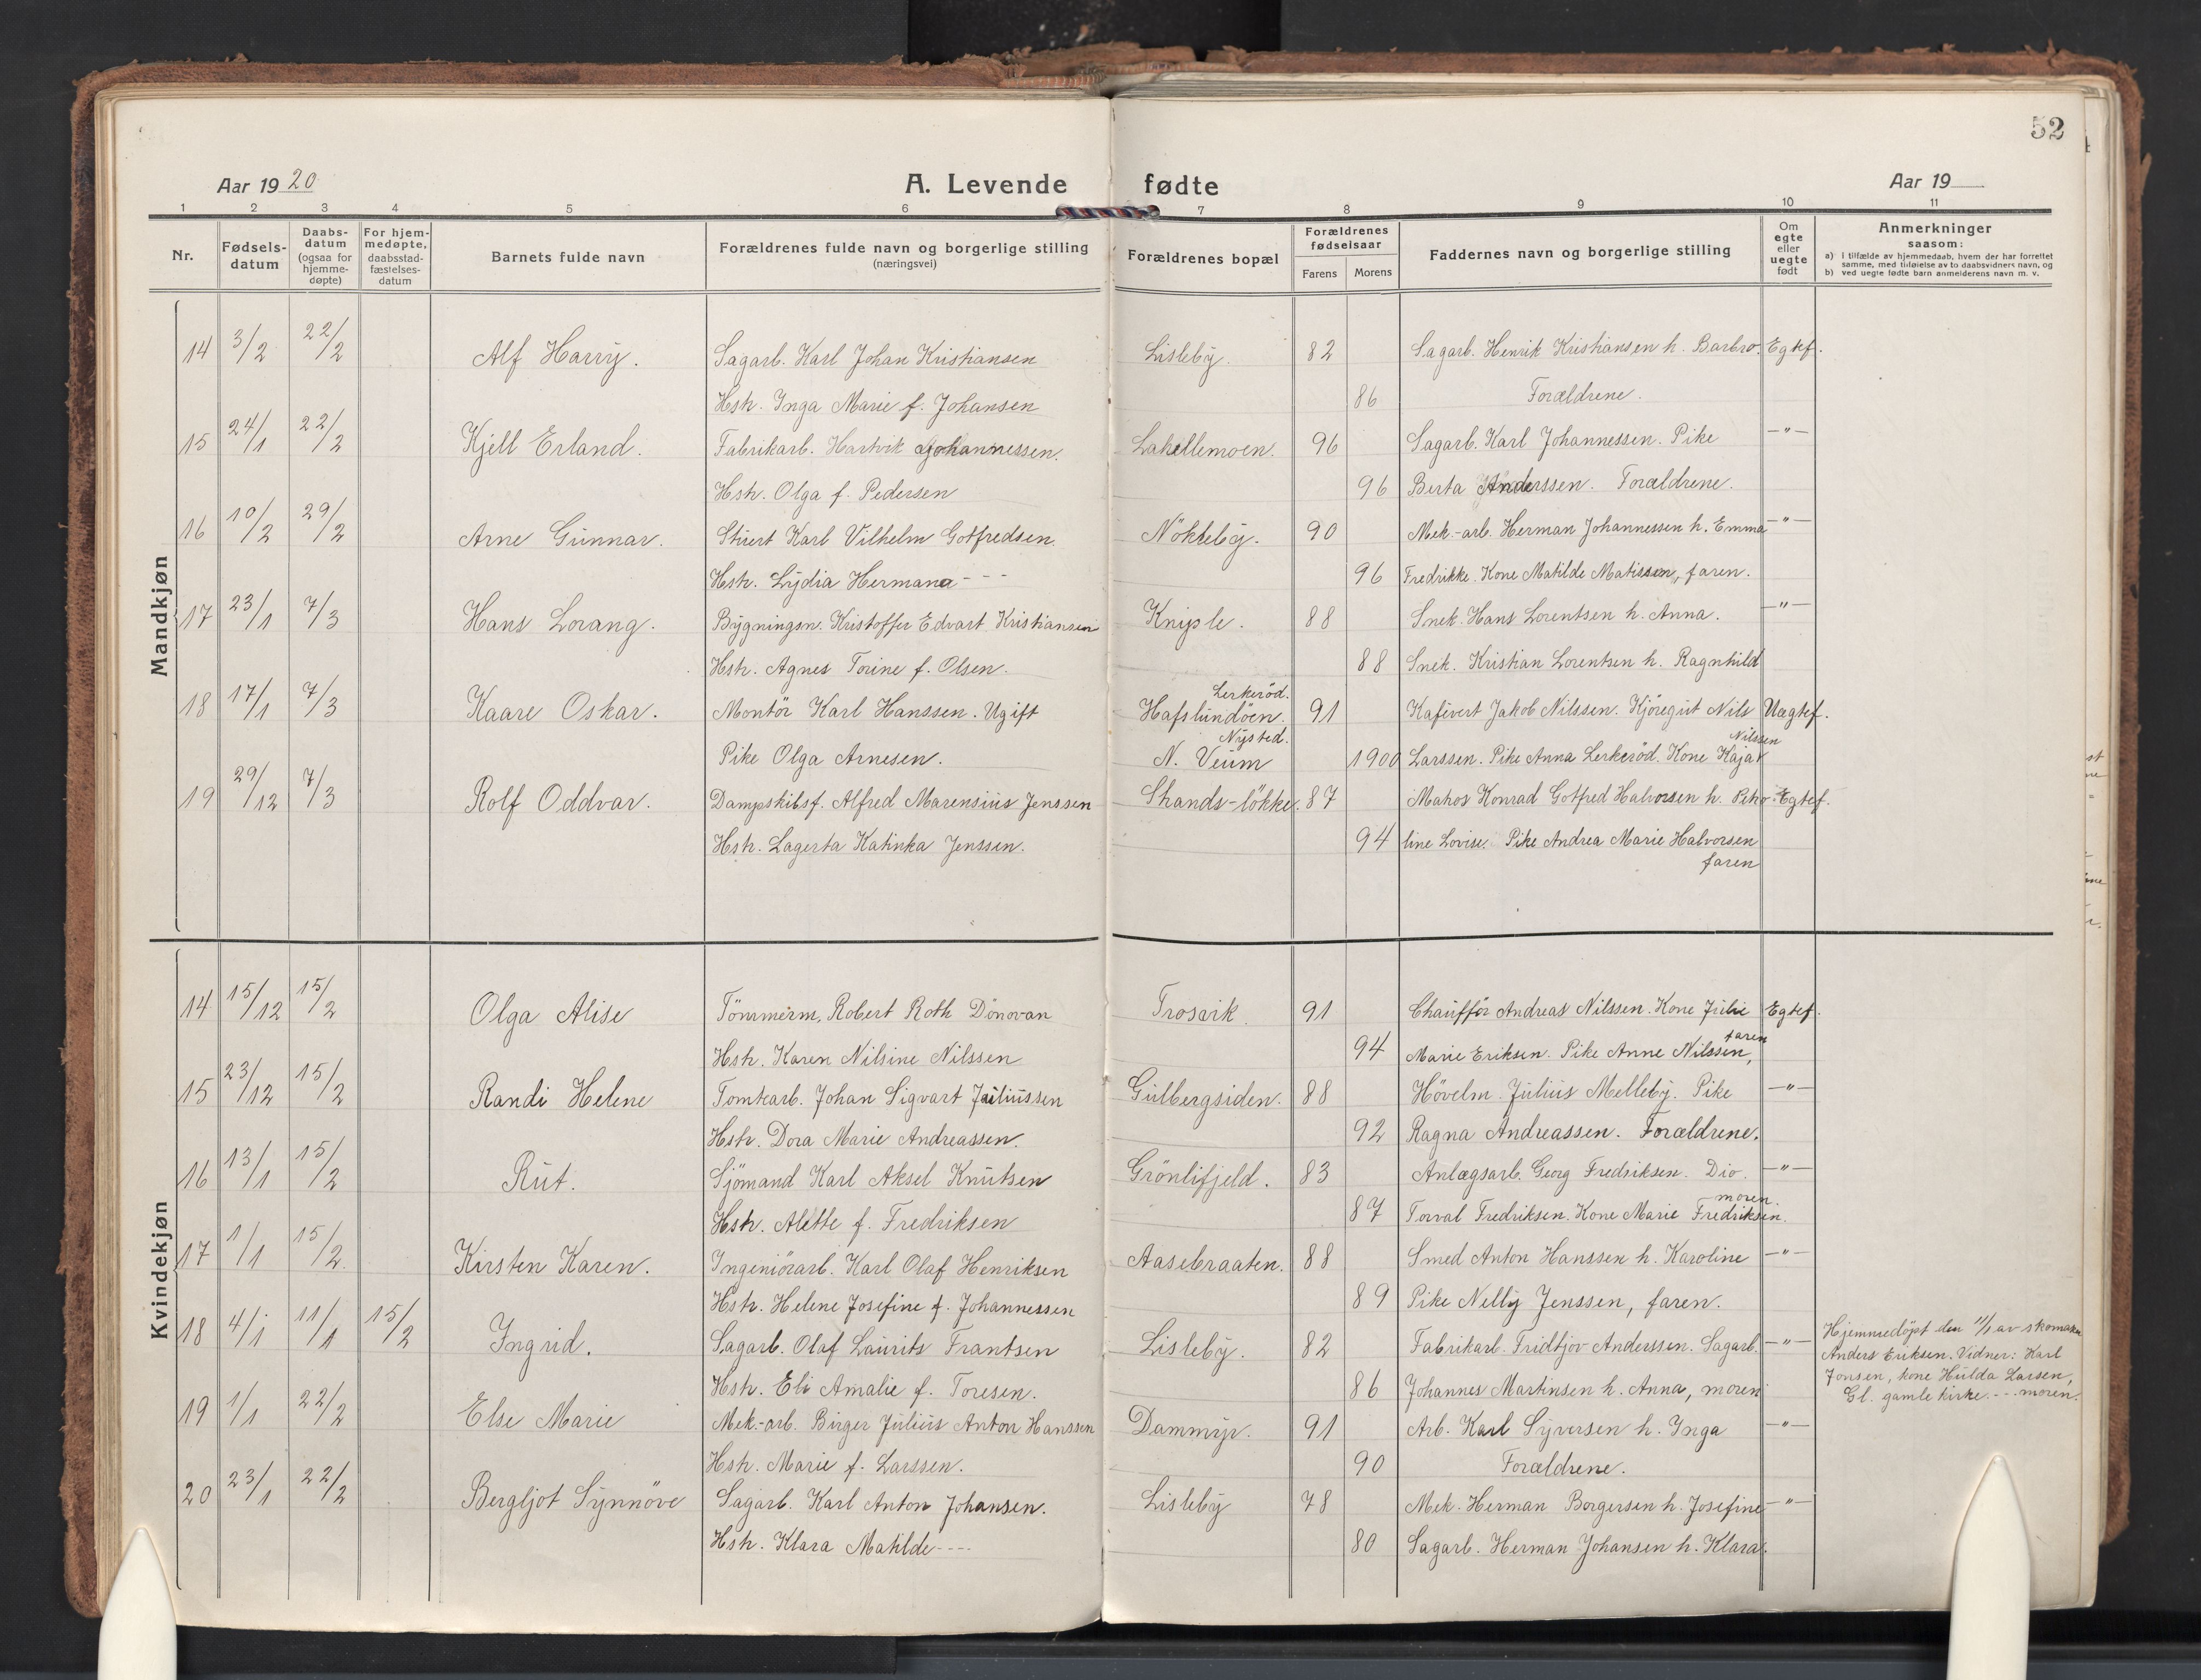 52
Aar 19 20 A. Levende fødte Aar 19
1 2 3 4 5 6 7 8 9 10 11
Nr. Fødsels-datum Daabs-datum (ogsaa for hjemme-døpte) For hjem-medøpte, daabsstad-fæstelses-datum Barnets fulde navn Forældrenes fulde navn og borgerlige stilling (næringsvei) Forældrenes bopæl Forældrenes fødselsaar Farens Morens Faddernes navn og borgerlige stilling Om egte eller uegte født Anmerkninger saasom: a) i tilfælde av hjemmedaab, hvem der har forrettet samme, med tilføielse av to daabsvidners navn, og b) ved uegte fødte barn anmelderens navn m. v.
Mandkjøn
14 3/2 22/2 Alf Harry. Sagarb. Karl Johan Kristiansen Lisleby. 82 Sagarb. Henrik Kristiansen h. Barbro. Egtef.
Hstr. Inga Marie f. Johansen 86 Forældrene.
15 24/1 22/2 Kjell Erland. Fabrikarb. Hartvik Johannessen. Lahellemoen. 96 Sagarb. Karl Johannessen. Pike -"-
Hstr. Olga f. Pedersen 96 Berta Anderssen. Forældrene.
16 10/2 29/2 Arne Gunnar. Stuert Karl Vilhelm Gotfredsen. Nökleby. 90 Mek.-arb. Herman Johannessen h. Emma -"-
Hstr. Lydia Hermana - - - 96 Fredrikke. Kone Matilde Matissen, faren.
17 23/1 7/3 Hans Lorang. Bygningsn. Kristoffer Edvart Kristiansen Kniple. 88 Snek. Hans Lorentsen h. Anna. -"-
Hstr. Agnes Torine f. Olsen. 88 Snek. Kristian Lorentsen h. Ragnhild
Lerkeröd.
18 17/1 7/3 Kaare Oskar. Montör Karl Hanssen. Ugift Hafslundöen. 91 Kafévert Jakob Nilssen. Kjöregut Nils Uegtef.
Nysted. Nilssen
Pike Olga Arnesen. N. Veum 1900 Larssen. Pike Anna Lerkeröd. Kone Kaja
19 29/12 7/3 Rolf Oddvar. Dampskibsf. Alfred Marensius Jenssen Strands-lökke. 87 Matros Konrad Gotfred Halvorsen h. Petro- Egtef.
Hstr. Lagerta Katinka Jenssen. 94 line Lovise. Pike Andrea Marie Halvorsen
faren
Kvindekjøn
14 15/12 15/2 Olga Alise Tömmerm. Robert Roth Donovan Trosvik. 91 Chaufför Andreas Nilssen. Kone Julie Egtef.
faren
Hstr. Karen Nilsine Nilssen 94 Marie Eriksen. Pike Anne Nilssen,
15 23/12 15/2 Randi Helene Tomtearb. Johan Sigvart Juliussen Gulbergsiden. 88 Hövelm. Julius Melleby. Pike -"-
Hstr. Dora Marie Andreassen. 92 Ragna Andreassen. Forældrene.
16 13/1 15/2 Rut. Sjömand Karl Aksel Knutsen Grönlifjeld. 83 Anlægsarb. Georg Fredriksen. Dio. -"-
moren.
Hstr. Alette f. Fredriksen 87 Torval Fredriksen. Kone Marie Fredriksen.
17 1/1 15/2 Kirsten Karen. Ingeniörarb. Karl Olaf Henriksen Aasebraaten. 88 Smed Anton Hanssen h. Karoline -"-
Hstr. Helene Josefine f. Johannessen 89 Pike Nelly Jenssen, faren.
18 4/1 11/1 15/2 Ingrid. Sagarb. Olaf Laurits Frantsen Lisleby. 82 Fabrikarb. Fridtjov Anderssen. Sagarb. -"- Hjemmedöpt den 11/1 av skomaker
Anders Eriksen. Vidner: Karl
Jonsen, kone Hulda Larsen,
Hstr. Eli Amalie f. Toresen. 86 Johannes Martinsen h. Anna, moren Gl. gamle kirke. - - - moren.
19 1/1 22/2 Else Marie Mek.-arb. Birger Julius Anton Hanssen Dammyr. 91 Arb. Karl Syversen h. Inga -"-
Hstr. Marie f. Larssen. 90 Forældrene.
20 23/1 22/2 Bergljot Synnöve Sagarb. Karl Anton Johansen. Lisleby 78 Mek. Herman Borgersen h. Josefine -"-
Hstr. Klara Matilde - - - 80 Sagarb. Herman Johansen h. Klara.